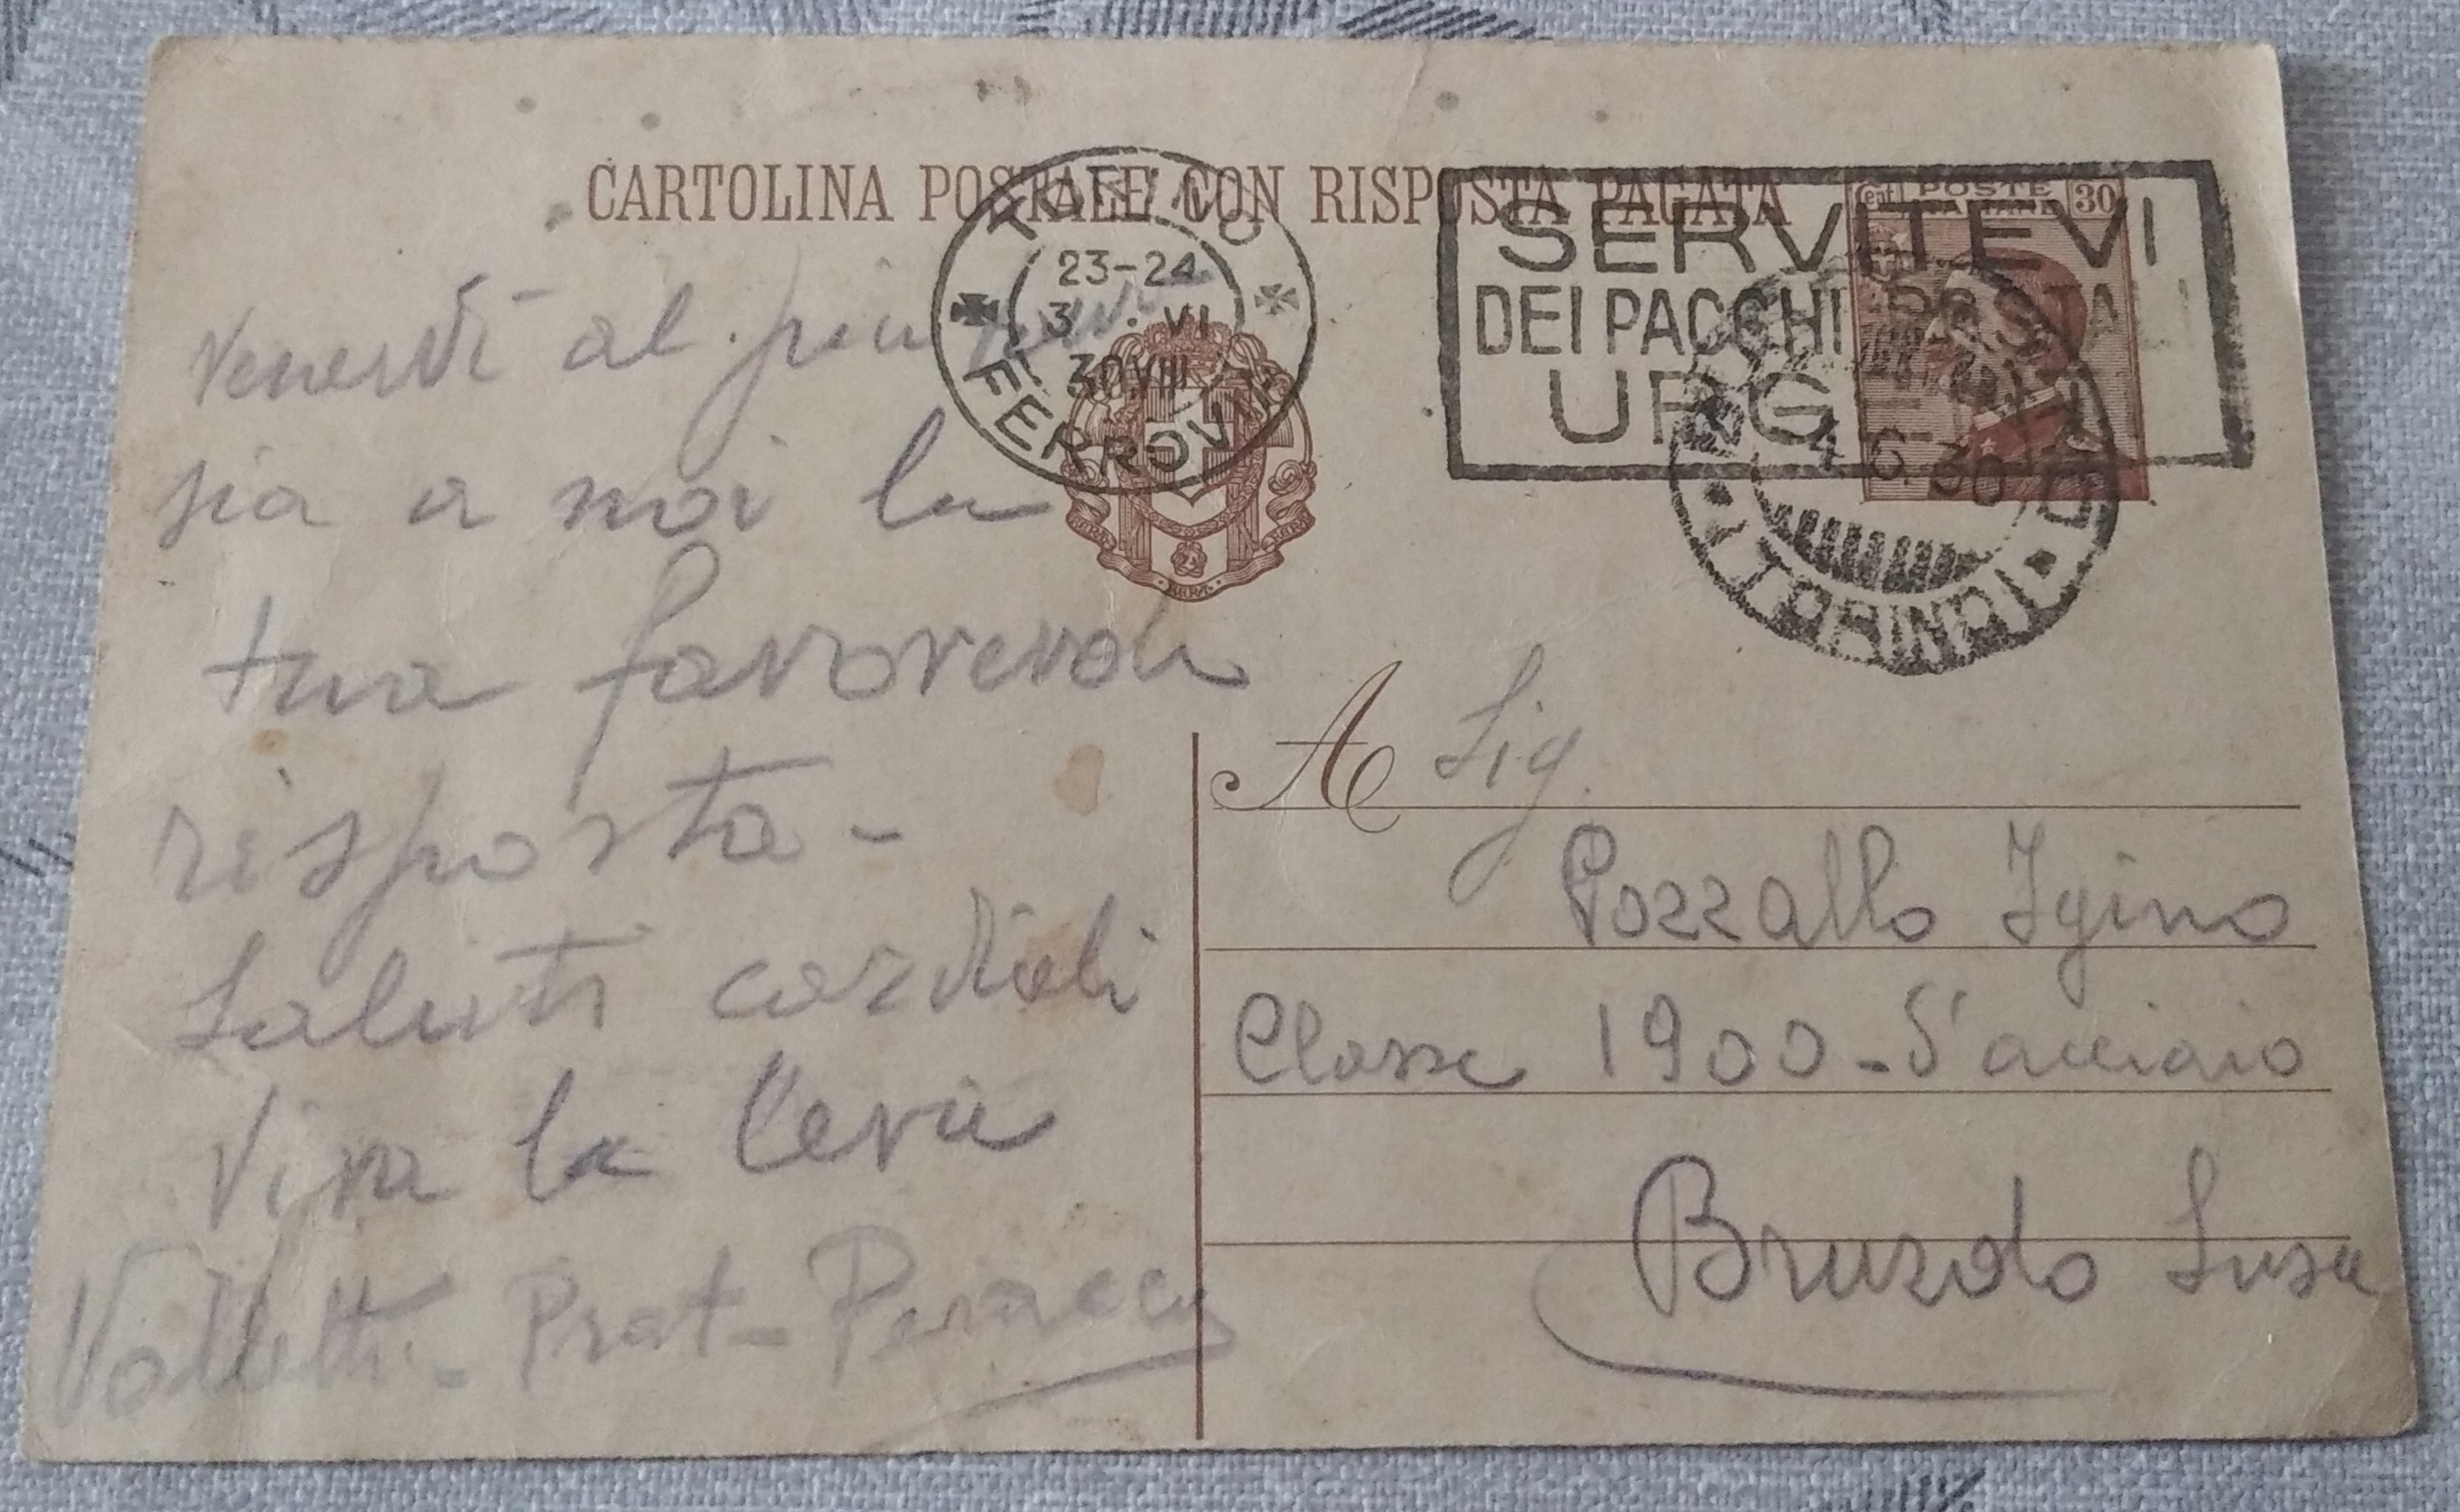 CARTOLINA POSTALE CON RISPOSTA PAGATA
TORINO
23-24
3 . VI
30 VIII
FERROVIA
SERVITEVI
DEI PACCHI POSTALI
URGENTI
Cent POSTE ITALIANE 30
4.6.30
TORINO
Venerdì al più
sia a noi la
tua favorevole
risposta -
Saluti cordiali
Viva la leva
A Sig.
Pozzallo Igino
Classe 1900 - D'acciaio
Bruzolo Susa
- Prat -